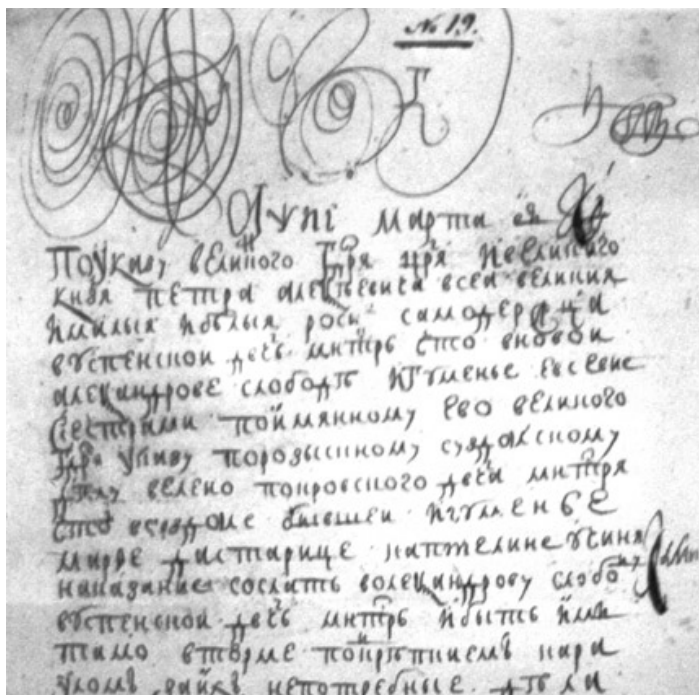 № 19.
аѱиі марта
По указу великого гдря цря и великого
князя петра алеѯѣевича всеа великия
и малыя и бѣлыя росиі самодержца
в успенской двчь мнтрь что в новой
алеѯандрове слободѣ игуменье евсевие
с сестрами по имянному ево великого
гдря указу по розыскному суздалскому
делу велено покровского двчя мнтря
что в суздале бывшей игуменье
марѳе да старице капжелине учиня
наказание сослать в олеѯандрову слобо
в успенской двчь мнтрь и быть имъ
тамо в тюрме
непотребные дѣла